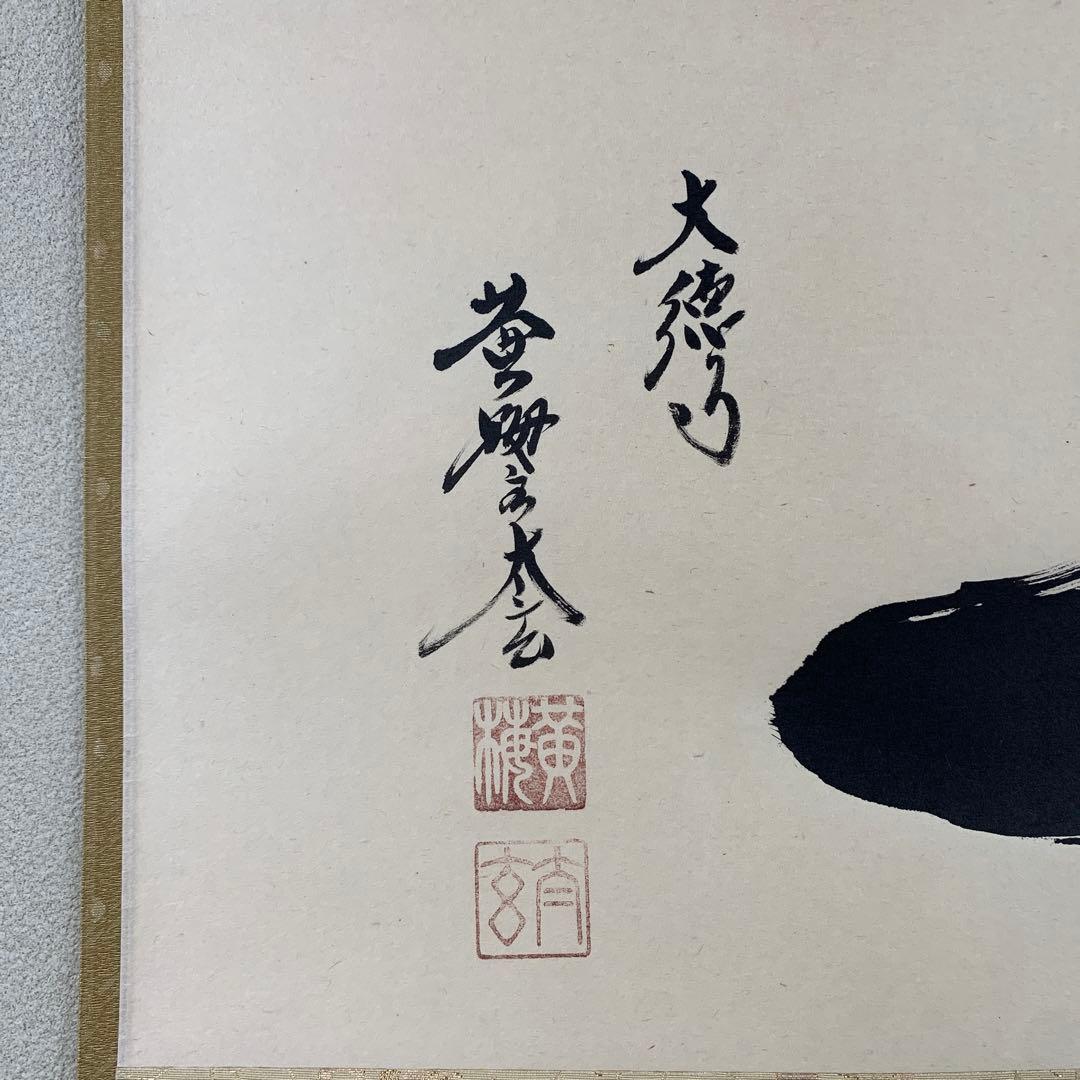 大徳寺
黄梅太玄
黄梅
太玄